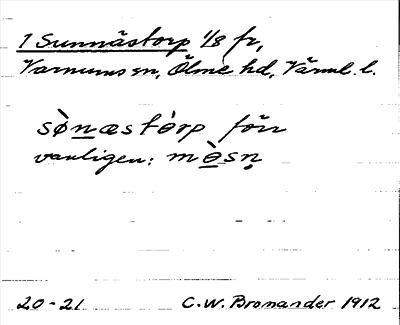 1 Sunnästorp 1/8 fr,
Varnums sn, Ölme hd, Värml. l.
sø̀næstòrp förr
vanligen: mø̀sn̥
20-21 C.W. Bromander 1912